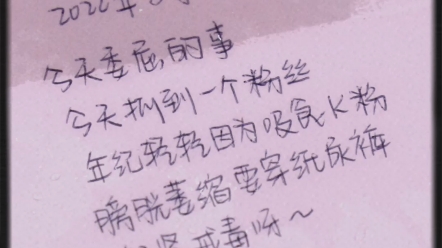 2022年
今天委屈的事
今天捌到一个粉丝
年纪轻轻因为吸食K粉
膀胱萎缩要穿纸尿裤
戒毒呀~